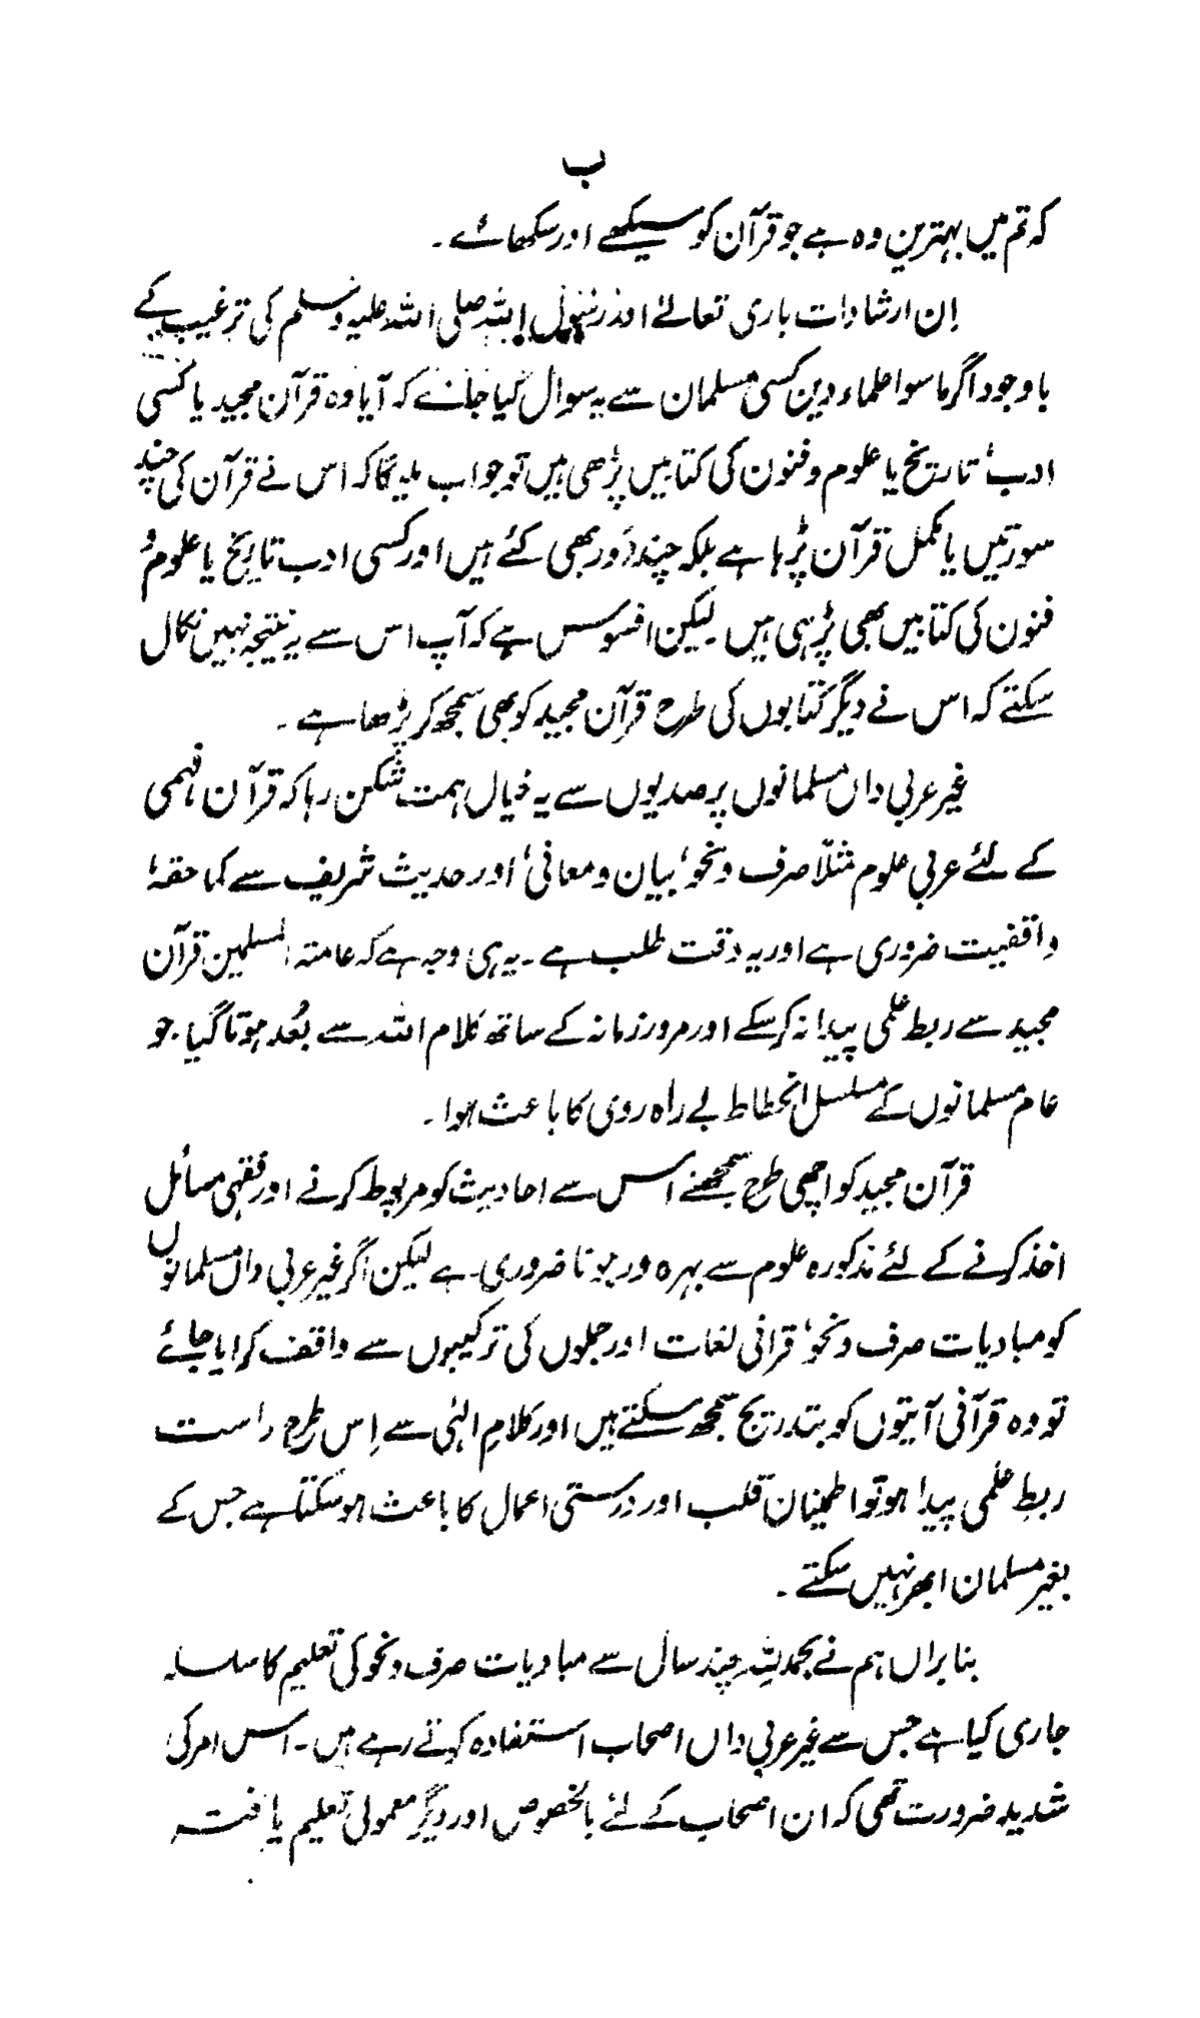 ب
کہ تم میں بہترین وہ ہے جو قرآن کو سیکھے اور سکھائے۔
اِن ارشادات باری تعالےٰ اور رسول اللہ صلی اللہ علیہ وسلم کی ترغیب کے
باوجود اگر ماسوا علماء دین کسی مسلمان سے یہ سوال کیا جائے کہ آیا وہ قرآن مجید یا کسی
ادب، تاریخ یا علوم و فنون کی کتابیں پڑھی ہیں تو جواب ملیگا کہ اس نے قرآن کی چند
سورتیں یا مکمل قرآن پڑہا ہے بلکہ چند دَور بھی کئے ہیں اور کسی ادب تاریخ یا علوم و
فنون کی کتابیں بھی پڑہی ہیں۔ لیکن افسوس ہے کہ آپ اس سے یہ نتیجہ نہیں نکال
سکتے کہ اس نے دیگر کتابوں کی طرح قرآن مجید کو بھی سمجھ کر پڑھا ہے۔
غیر عربی داں مسلمانوں پر صدیوں سے یہ خیال ہمت شکن رہا کہ قرآن فہمی
کے لئے عربی علوم مثلاً صرف و نحو، بیان و معانی، اور حدیث شریف سے کما حقہٗ
واقفیت ضروری ہے اور یہ دقت طلب ہے۔ یہی وجہ ہے کہ عامتہ المسلمین قرآن
مجید سے ربط علمی پیدا نہ کر سکے اور مرور زمانہ کے ساتھ کلام اللہ سے بُعد ہوتا گیا۔ جو
عام مسلمانوں کے مسلسل انحطاط بے راہ روی کا باعث ہوا۔
قرآن مجید کو اچھی طرح سمجھنے اس سے احادیث کو مربوط کرنے اور فقہی مسائل
اخذ کرنے کے لئے مذکورہ علوم سے بہرہ ور ہونا ضروری ہے لیکن اگر غیر عربی داں مسلمانوں
کو مبادیات صرف و نحو، قرانی لغات اور جملوں کی ترکیبوں سے واقف کرایا جائے
تو وہ قرآنی آیتوں کو بتدریج سمجھ سکتے ہیں اور کلامِ الٰہی سے اِس طرح راست
ربطِ علمی پیدا ہو تو اطمینان قلب اور درستی اعمال کا باعث ہو سکتا ہے جس کے
بغیر مسلمان ابھر نہیں سکتے۔
بنا براں ہم نے بحمد للہِ چند سال سے مبادیات صرف و نحو کی تعلیم کا سلسلہ
جاری کیا ہے جس سے غیر عربی داں اصحاب استفادہ کرتے رہے ہیں۔ اس امر کی
شدید ضرورت تھی کہ ان اصحاب کے لئے بالخصوص اور دیگر معمولی تعلیم یافتہ